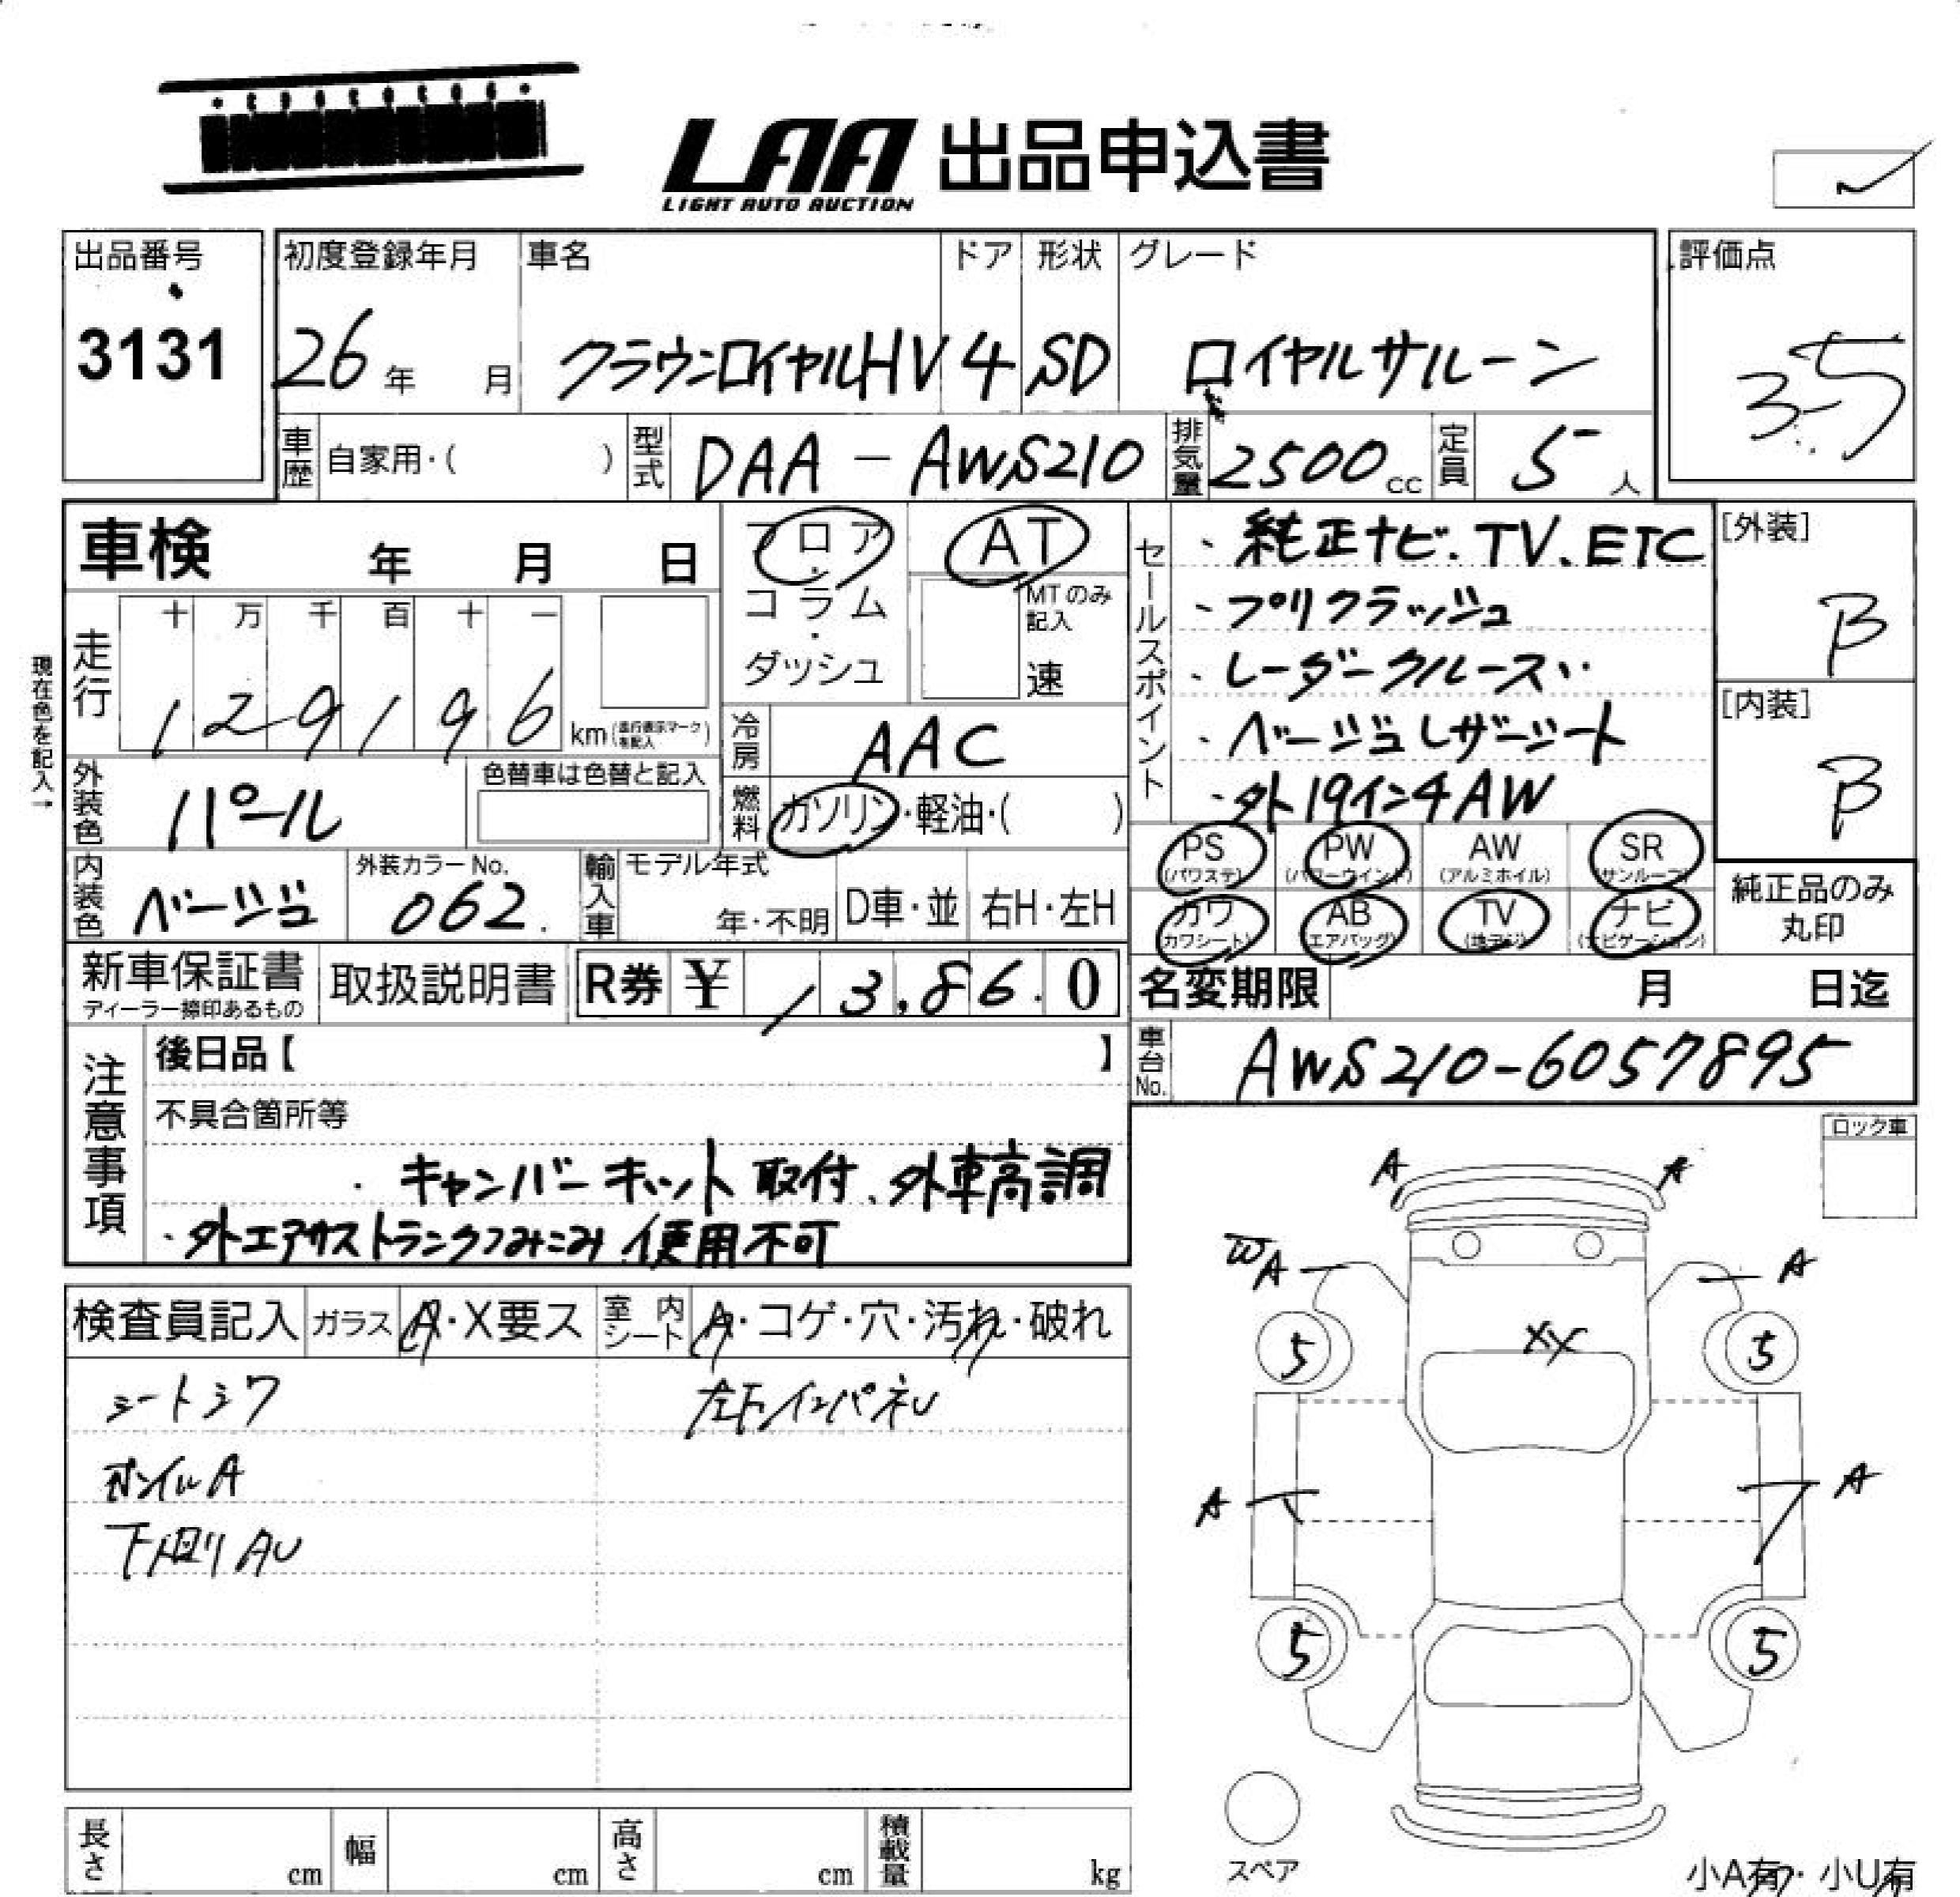 LAA 出品申込書
LIGHT AUTO AUCTION
出品番号 初度登録年月 車名 ドア 形状 グレード 評価点
3131 26年 月 クラウンロイヤルHV 4 SD ロイヤルサルーン 3.5
車歴 自家用・( ) 型式 DAA-AWS210 排気量 2500cc 定員 5人
車検 年 月 日 フロア・コラム・ダッシュ AT
MTのみ記入 速
セールスポイント
・純正ナビ.TV.ETC
・プリクラッシュ
・レーダークルーズ
・ベージュレザーシート
・外19インチAW
[外装] B
[内装] B
現在色を記入→
走行 十 万 千 百 十 一
129196 km(走行表示マークを記入)
冷房 AAC
外装色 パール 色替車は色替と記入
燃料 ガソリン・軽油・( )
内装色 ベージュ 外装カラーNo. 062. 輸入車 モデル年式 年・不明 D車・並 右H・左H
PS (パワステ) PW (パワーウインド) AW (アルミホイル) SR (サンルーフ)
カワ (カワシート) AB (エアバッグ) TV (地デジ) ナビ (ナビゲーション)
純正品のみ丸印
新車保証書 ディーラー捺印あるもの 取扱説明書 R券 ¥ 13,860
名変期限 月 日迄
車台No. AWS210-6057895
注意事項
後日品【 】
不具合箇所等
・キャンバーキット取付、外車高調
・外エアサストランクつみこみ 使用不可
ロック車
検査員記入 ガラス A・X要ス 室内シート A・コゲ・穴・汚れ・破れ
シートシワ
ホイルA
下廻りAU
A A
W A A
XX
5 5
A A
5 5
スペア
長さ cm 幅 cm 高さ cm 積載量 kg
小A有・小U有